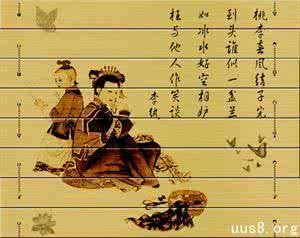 桃李春风结子完
到头谁似一盆兰
如冰水好空相妒
枉与他人作笑谈
李纨
uus8.org